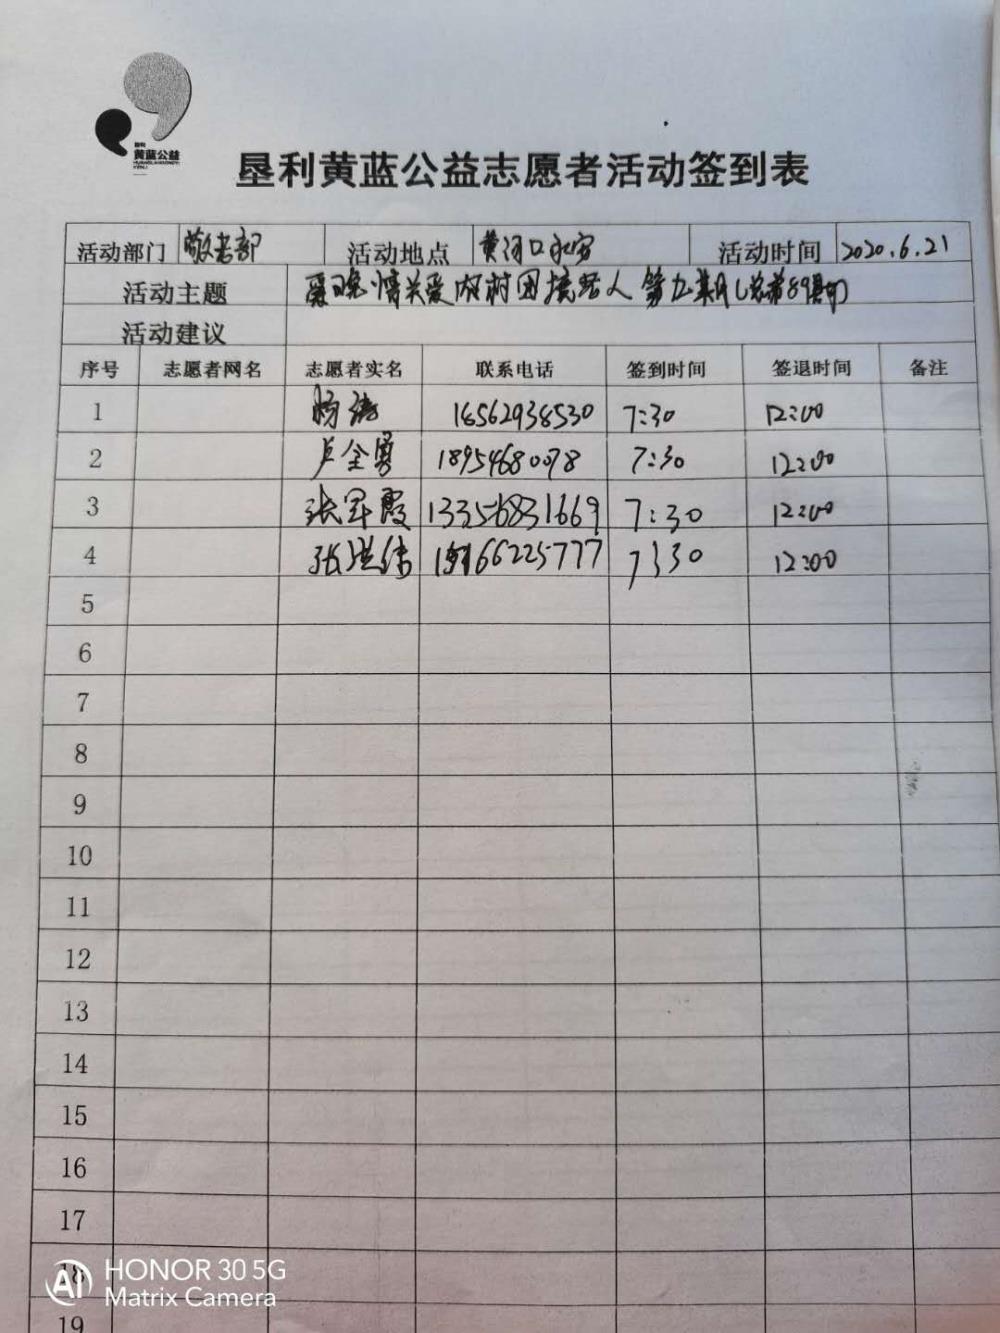 垦利
黄蓝公益
垦利黄蓝公益志愿者活动签到表
活动部门 敬老部 活动地点 黄河口永安 活动时间 2020.6.21
活动主题 情关爱 村困境老人 第九 期(总第89期)
活动建议
序号 志愿者网名 志愿者实名 联系电话 签到时间 签退时间 备注
1 杨涛 18562938530 7:30 12:00
2 卢全勇 18954680078 7:30 12:00
3 张军霞 13356831669 7:30 12:00
4 张洪伟 7:30 12:00
5
6
7
8
9
10
11
12
13
14
15
16
17
18
19
AI HONOR 30 5G
Matrix Camera